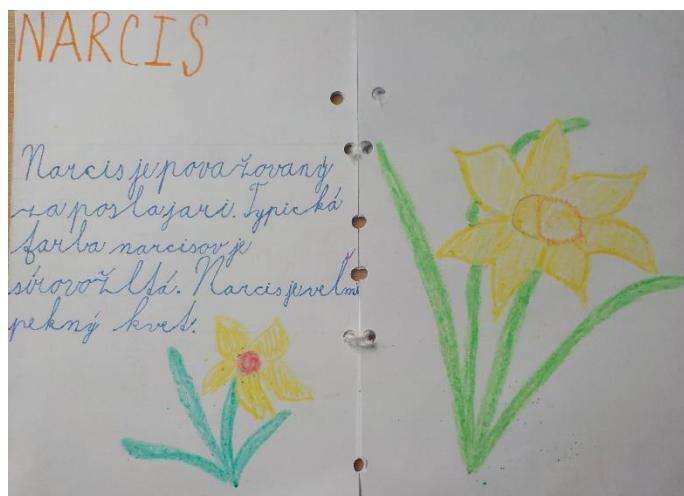 NARCIS
Narcis je považovaný
za posla jari. Typická
farba narcisov je
sírovožltá. Narcis je veľmi
pekný kvet.